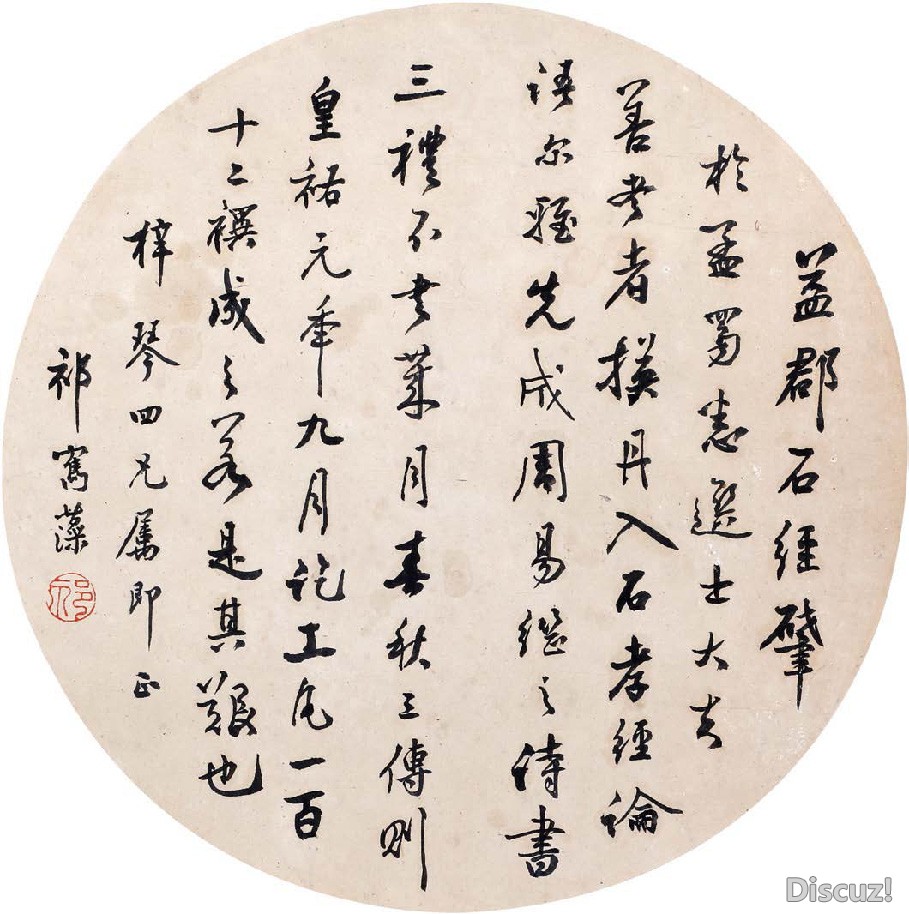 益郡石經肇
於孟蜀悉選士大夫
善書者模丹入石孝經論
語爾雅先成周易繼之詩書
三禮不書某月春秋三傳則
皇祐元年九月訖工凡一百
十二禩成之若是其艱也
梓琴四兄屬即正
祁寯藻
祁
Discuz!